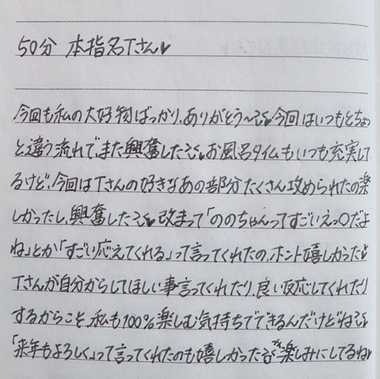 50分 本指名Tさん♥
今回も私の大好物ばっかり、ありがとう〜💕今回はいつもとちょっ
と違う流れで、また興奮した💕お風呂タイムもいつも充実して
るけど、今回はTさんの好きなあの部分たくさん攻められたの楽
しかったし、興奮した💕改まって「ののちゃんってすごいえっ○だよ
ね」とか「すごい応えてくれる」って言ってくれたの、ホント嬉しかった♥
Tさんが自分からしてほしい事言ってくれたり、良い反応してくれたり
するからこそ、私も100%楽しむ気持ちでできるんだけどね💕
「来年もよろしく」って言ってくれたのも嬉しかった 楽しみにしてるね